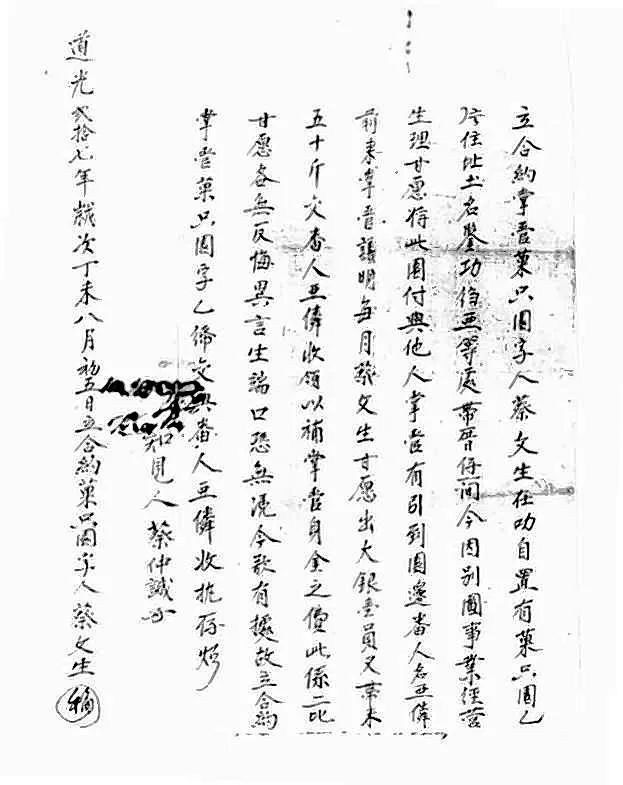 立合約掌管菓只園字人蔡文生在叻自置有菓只園乙
住址土名 等處帶厝 間今因別圖事業經营
生理甘愿将此園付與他人掌管有引到園邊番人名亜僯
前來掌管議明每月蔡文生甘愿出大銀壹員又帶米
五十斤交番人亜僯收領以補掌管身金之價此係二比
甘愿各無反悔異言生端口恐無凴今欲有據故立合約
掌管菓只園字乙 交與番人亜僯收抗存炤
知見人蔡仲誠
道光弍拾七年歲次丁未八月初五日立合約菓只園字人蔡文生